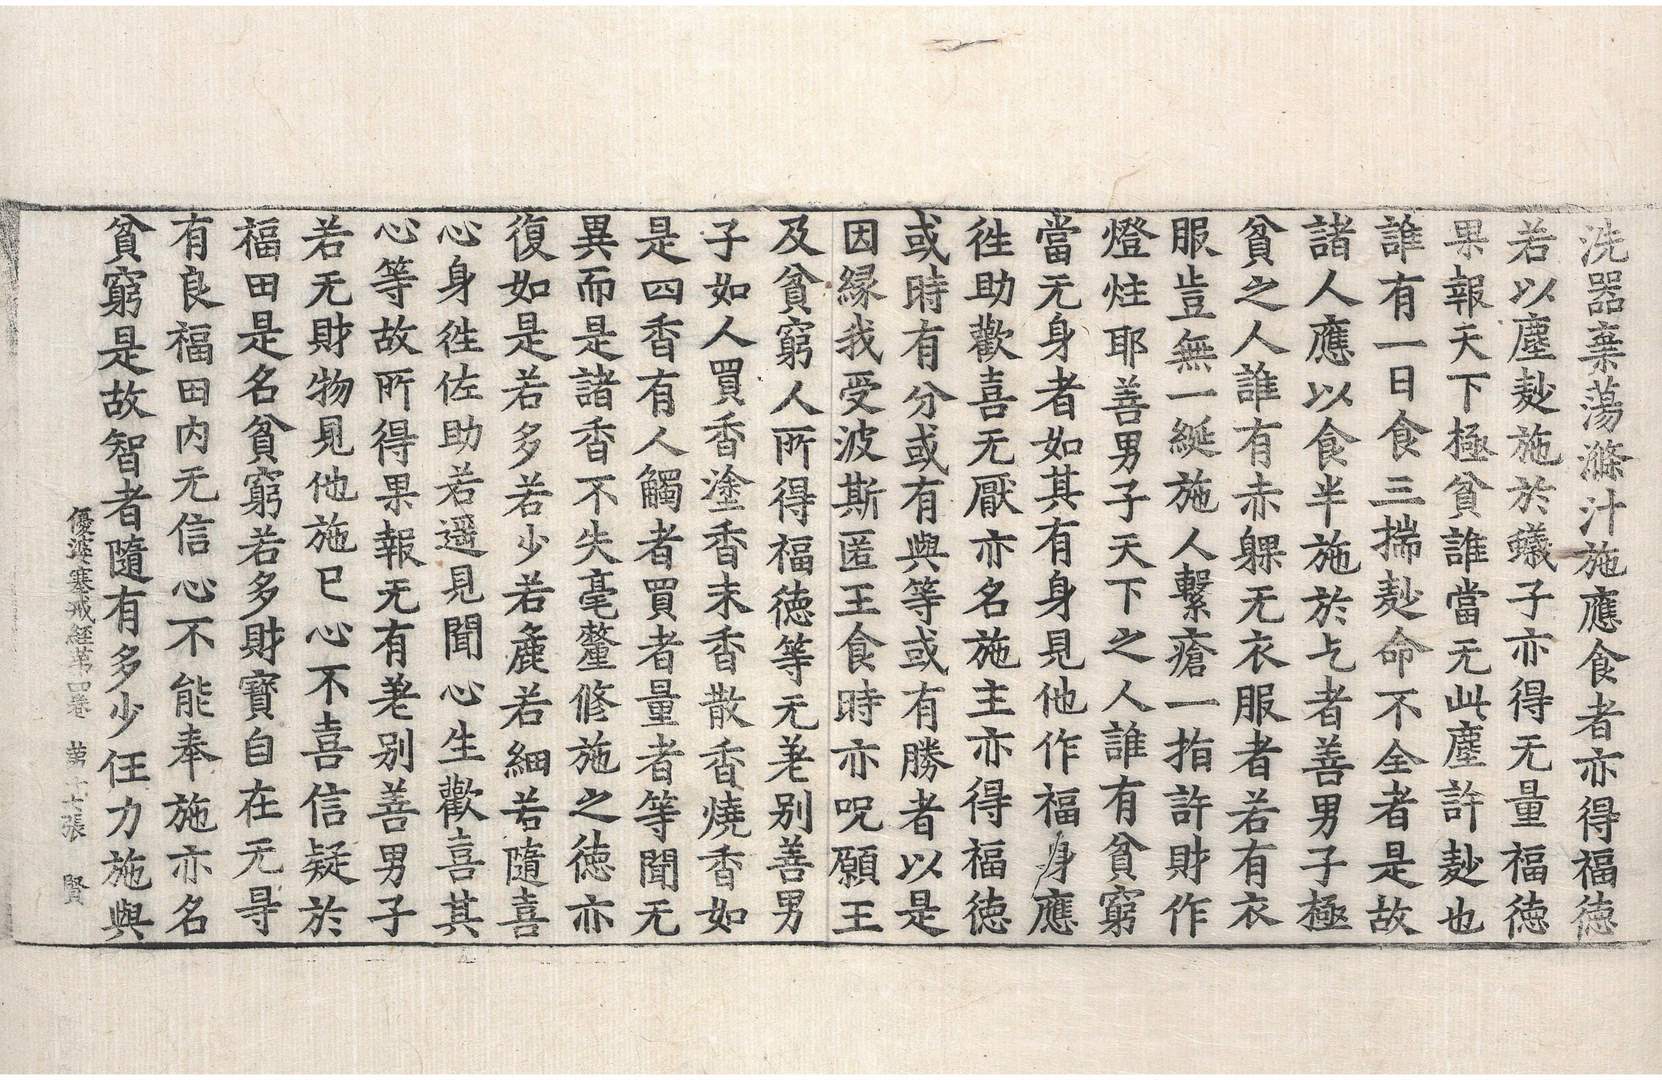 洗器棄蕩滌汁施應食者亦得福徳
若以塵麨施於蟻子亦得无量福徳
果報天下極貧誰當无此塵許麨也
誰有一日食三揣麨命不全者是故
諸人應以食半施於乞者善男子極
貧之人誰有赤躶无衣服者若有衣
服豈無一綖施人繫瘡一指許財作
燈炷耶善男子天下之人誰有貧窮
當无身者如其有身見他作福身應
徃助歡喜无厭亦名施主亦得福徳
或時有分或有與等或有勝者以是
因縁我受波斯匿王食時亦呪願王
及貧窮人所得福徳等无差别善男
子如人買香塗香末香散香燒香如
是四香有人觸者買者量者等聞无
異而是諸香不失毫釐修施之徳亦
復如是若多若少若麁若細若隨喜
心身徃佐助若遥見聞心生歡喜其
心等故所得果報无有差别善男子
若无財物見他施已心不喜信疑於
福田是名貧窮若多財寳自在无㝵
有良福田内无信心不能奉施亦名
貧窮是故智者隨有多少任力施與
優婆塞戒經苐四卷 苐十張 賢